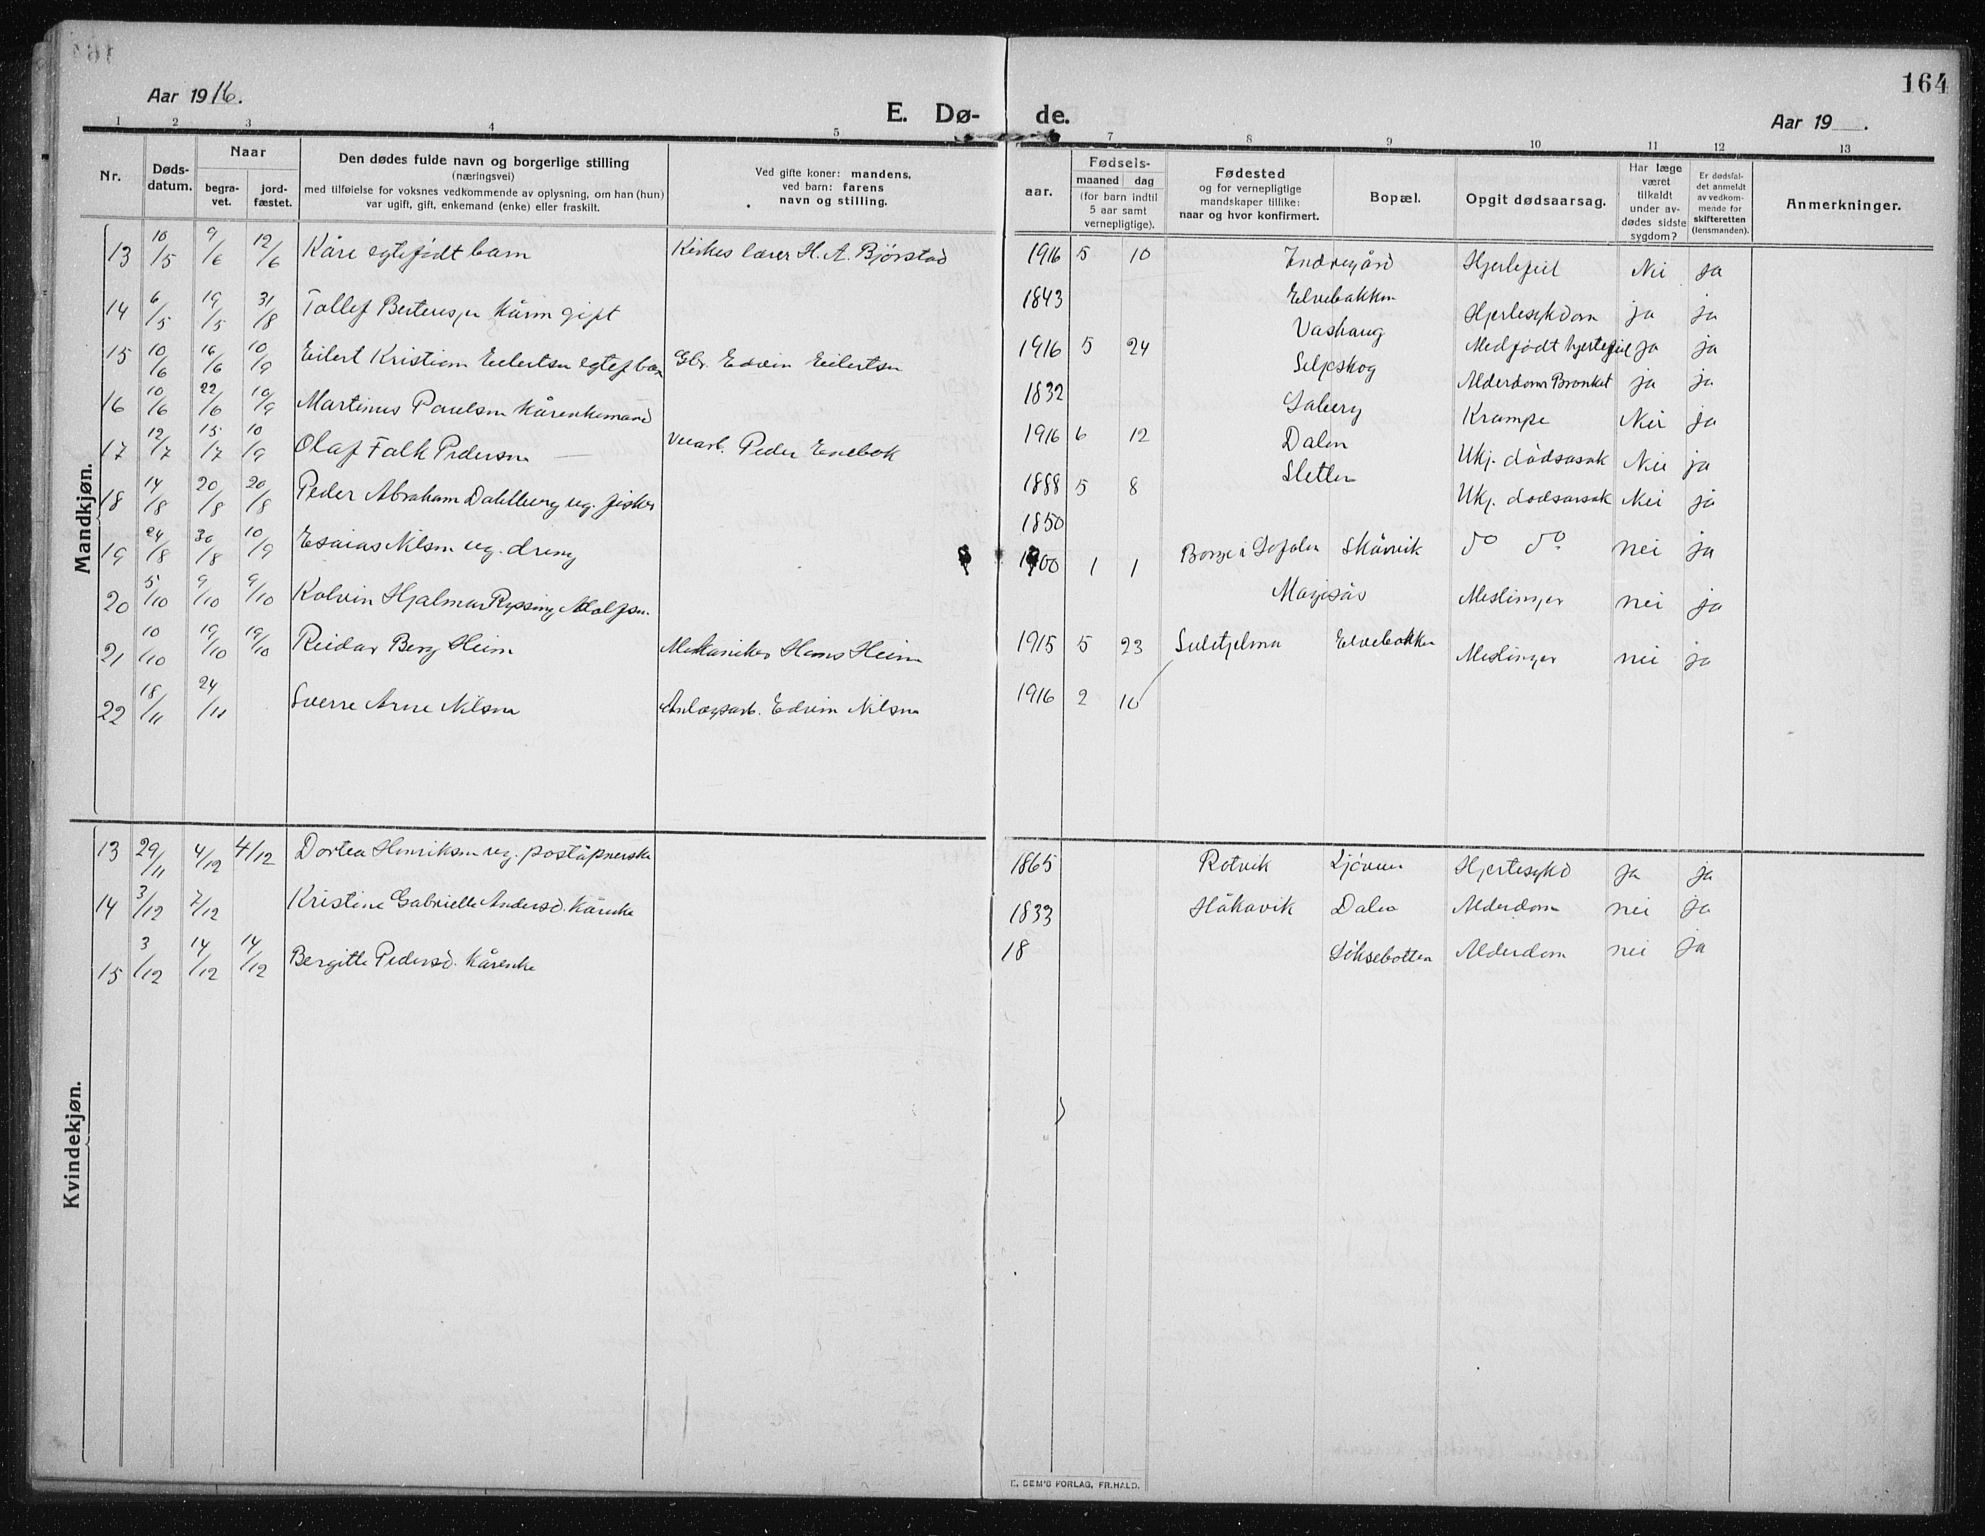 164
Aar 1916.
E. Dø-
de.
Aar 19 .
1 2 3 4 5 7 8 9 10 11 12 13
Nr.
Døds-
datum.
Naar
begra-
vet.
jord-
fæstet.
Den dødes fulde navn og borgerlige stilling
(næringsvei)
med tilføielse for voksnes vedkommende av oplysning, om han (hun)
var ugift, gift, enkemand (enke) eller fraskilt.
Ved gifte koner: mandens,
ved barn: farens
navn og stilling.
Fødsels-
aar.
maaned dag
(for barn indtil
5 aar samt
vernepligtige).
Fødested
og for vernepligtige
mandskaper tillike:
naar og hvor konfirmert.
Bopæl.
Opgit dødsaarsag.
Har læge
været
tilkaldt
under av-
dødes sidste
sygdom?
Er dødsfal-
det anmeldt
av vedkom-
mende for
skifteretten
(lensmanden).
Anmerkninger.
Mandkjøn.
13 10/5 9/6 12/6 Kåre egtefødt barn H. A. Bjørstad 1916 5 10 Indregård Hjertefeil Nei ja
14 6/5 19/5 31/8 Tollef gift 1843 Elvebakken Hjertesykdom ja ja
15 10/6 16/6 10/9 Eilert Kristian Eilertsen egtef barn Gbr. Edvin Eilertsen 1916 5 24 Vashaug Medfødt hjertefeil ja ja
16 10/6 22/6 10/9 Martinus Paulsen kårenkemand 1832 Seljeskog Alderdom Bronket ja ja
17 12/7 15/7 10/9 Olaf Falk Pedersen Peder Enebok 1916 6 12 Krampe Nei ja
18 14/8 20/8 20/8 Peder Abraham Dahlberg ug. fisker 1888 5 8 Dalen Ukj. dødsårsak Nei ja
19 24/8 30/8 10/9 Esaias Nilsen ug. dreng 1850 Sletten Ukj. dødsårsak Nei ja
20 5/10 9/10 9/10 Kolvin Hjalmar Ryssing Adolfsen 1900 1 1 Borge i Lofoten Skårvik do do nei ja
21 10/10 19/10 19/10 Reidar Berg Heim Mekaniker Hans Heim 1915 5 23 Meslinger nei ja
22 18/11 24/11 Sverre Arne Nilsen Anlægsarb. Edvin Nilsen 1916 2 10 Sulitjelma Elvebakken Meslinger nei ja
Kvindekjøn.
13 29/11 4/12 4/12 Dortea Henriksen ug. poståpnerske 1865 Rotvik Hjertesykd ja ja
14 3/12 7/12 Kristine Gabrielle Andersd. Kårenke 1833 Håkavik Dalen Alderdom nei ja
15 3/12 14/12 14/12 Bergitte Pedersd. Kårenke 18 Løksebotten Alderdom nei ja
E. SEM'S FORLAG, FR.HALD.